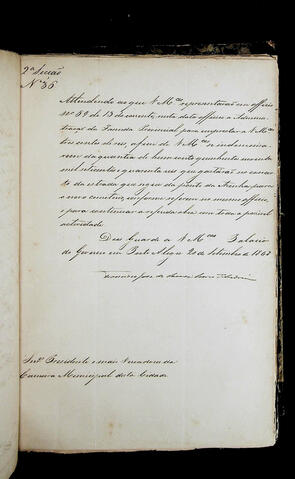 2ª Secção
Nº 36
Attendendo ao que V Mces representarão em officio
nº 59 de 13 do corrente, nesta data officio a Adminis
tração da Fazenda Provincial para emprestar a V Mces
tres contos de reis, a fim de V Mces se indemnisa
rem da quantia de hum conto quinhentos noventa
mil oitocentos e quarenta reis que gastarão no concer
to da estrada que segue da ponte da Azenha, para
o novo cemiterio, conforme referem no mesmo officio,
e para continuar a referida obra com toda a possivel
actividade.
Deos Guarde a V Mces Palacio
do Governo em Porto Alegre 20 de Setembro de
Snrs Presidente e mais Vereadores da
Camara Municipal desta Cidade